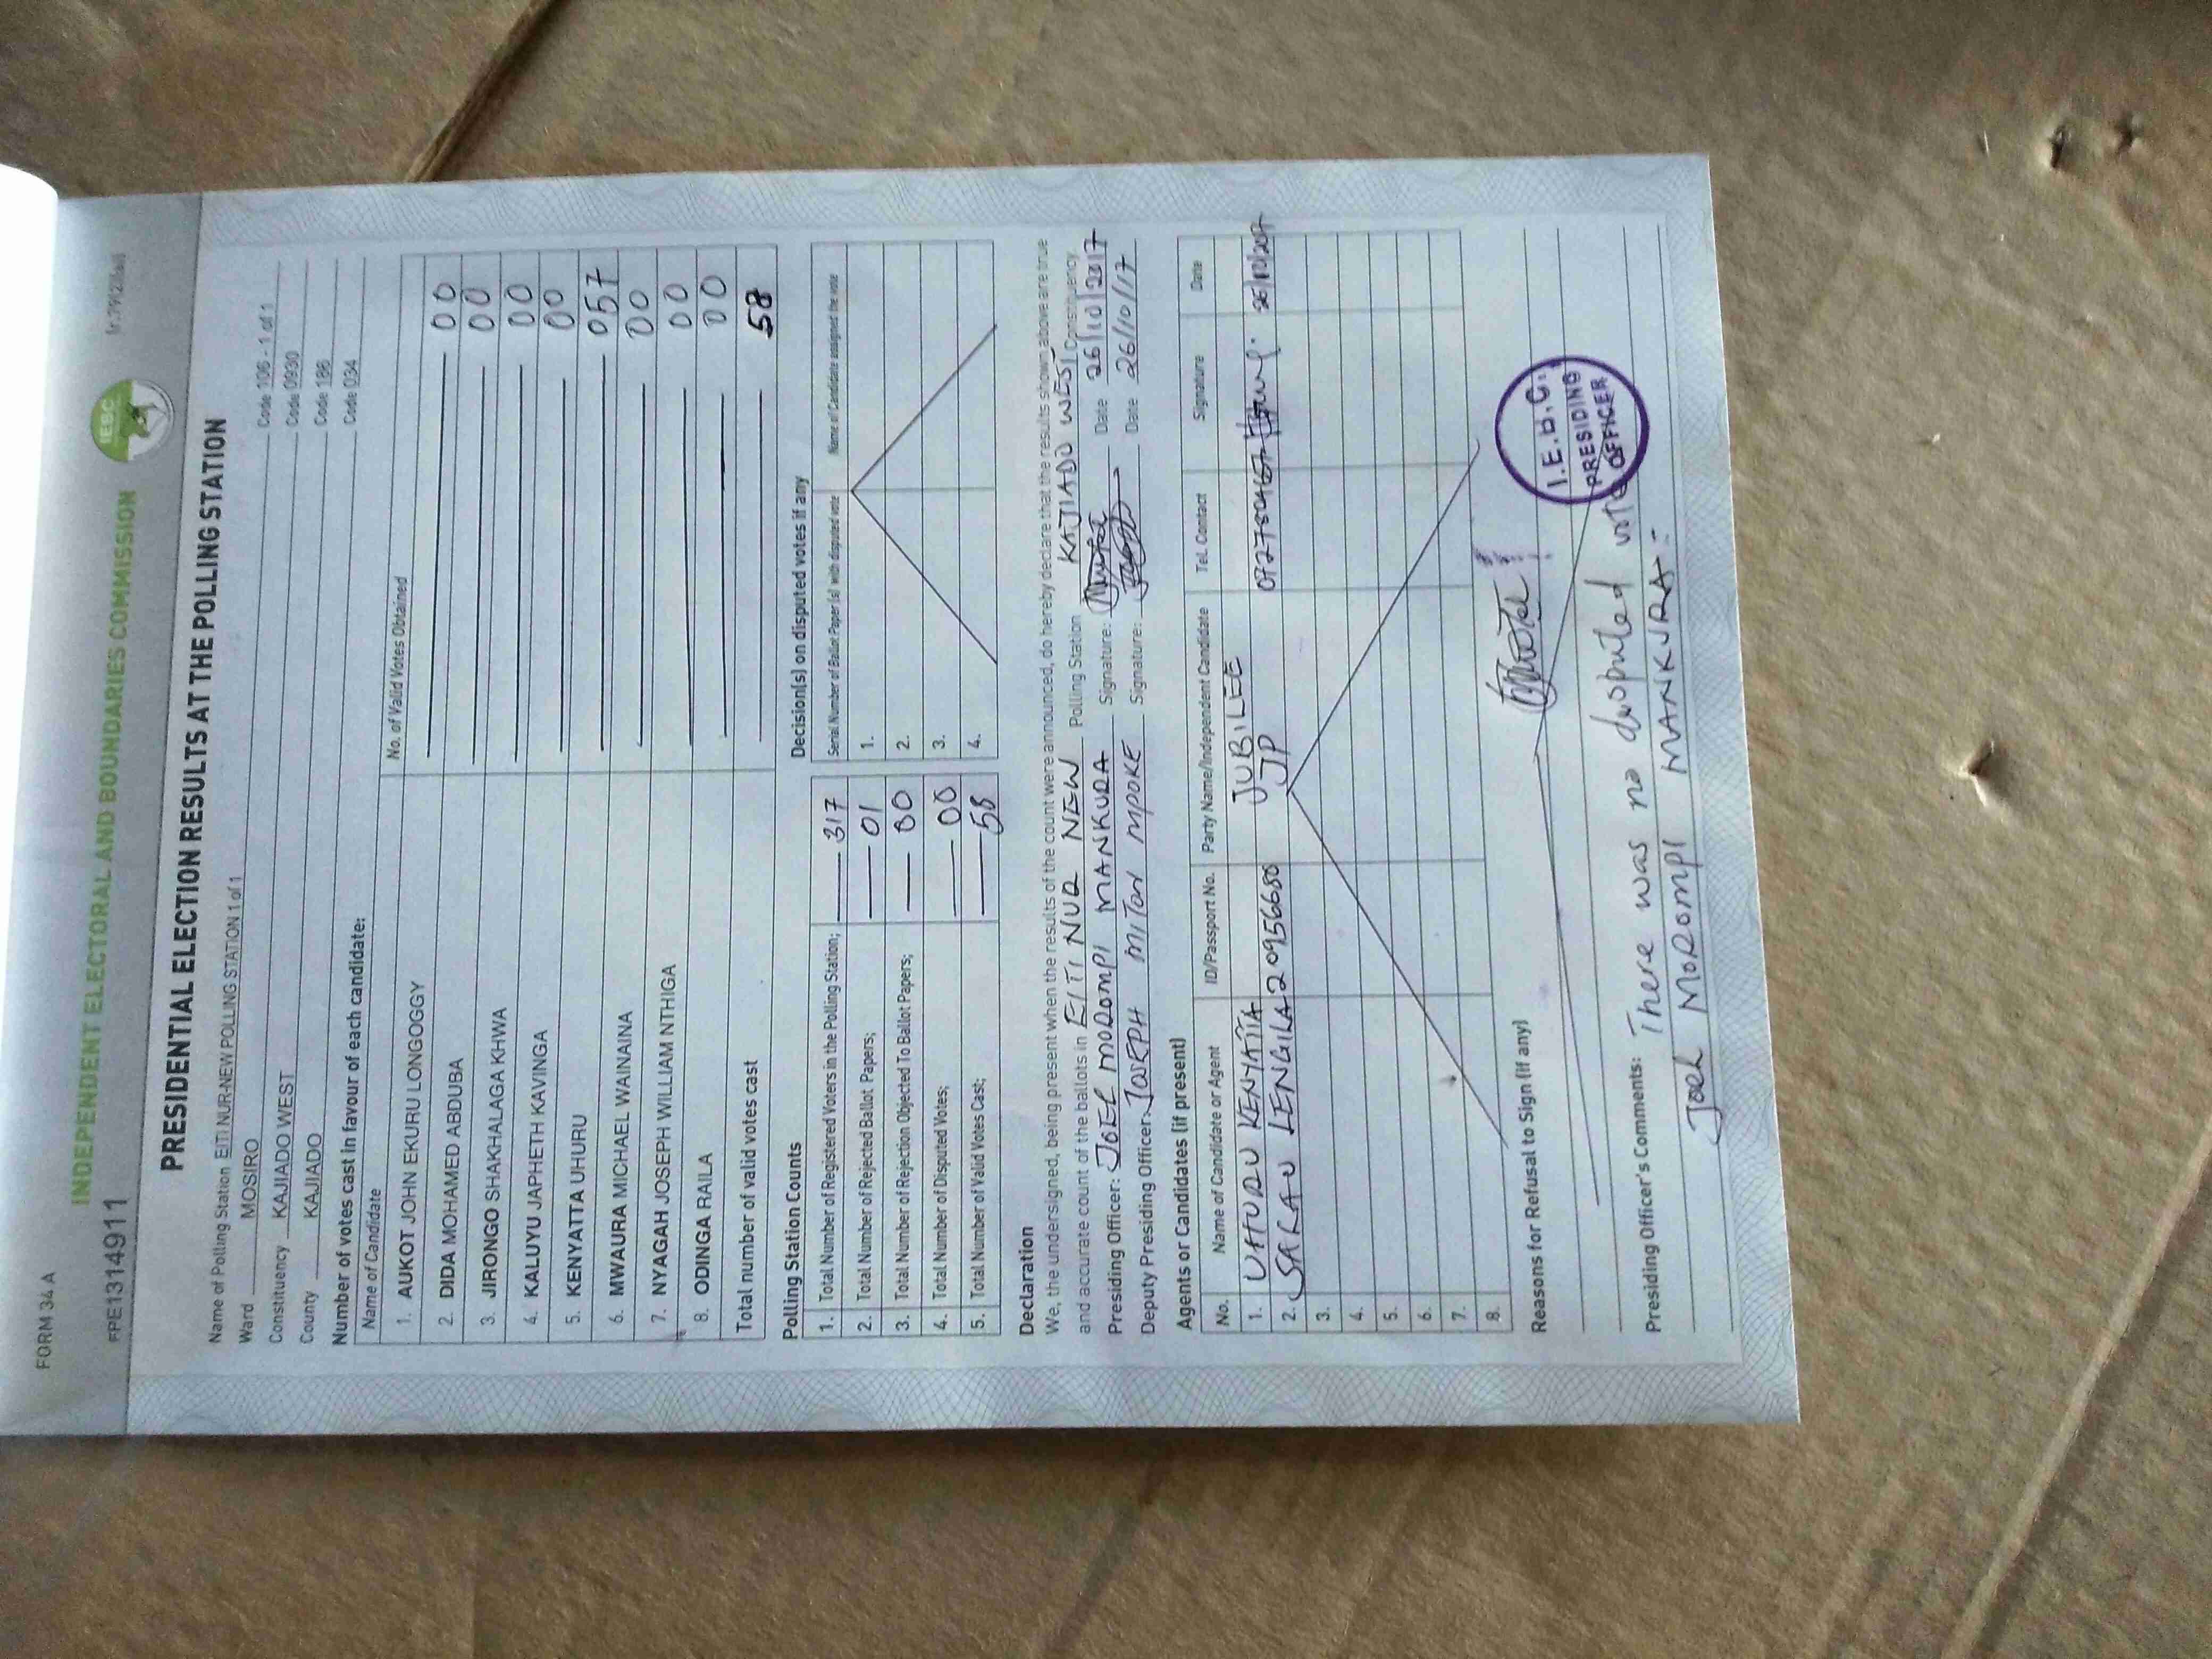 FORM 34 A
INDEPENDENT ELECTORAL AND BOUNDARIES COMMISSION
IEBC
PRESIDENTIAL ELECTION RESULTS AT THE POLLING STATION
Name of Polling Station EITI NUR-NEW POLLING STATION 1 of 1 Code 106 - 1 of 1
Ward MOSIRO Code 0930
Constituency KAJIADO WEST Code 186
County KAJIADO Code 034
Number of votes cast in favour of each candidate:
Name of Candidate No. of Valid Votes Obtained
1. AUKOT JOHN EKURU LONGOGGY 00
2. DIDA MOHAMED ABDUBA 00
3. JIRONGO SHAKHALAGA KHWA 00
4. KALUYU JAPHETH KAVINGA 00
5. KENYATTA UHURU 057
6. MWAURA MICHAEL WAINAINA 00
7. NYAGAH JOSEPH WILLIAM NTHIGA 00
8. ODINGA RAILA 00
Total number of valid votes cast 58
Polling Station Counts
1. Total Number of Registered Voters in the Polling Station; 317
2. Total Number of Rejected Ballot Papers; 01
3. Total Number of Rejection Objected To Ballot Papers; 00
4. Total Number of Disputed Votes; 00
5. Total Number of Valid Votes Cast; 58
Decision(s) on disputed votes if any
Serial Number of Ballot Paper (s) with disputed vote Name of Candidate assigned the vote
1.
2.
3.
4.
Declaration
We, the undersigned, being present when the results of the count were announced, do hereby declare that the results shown above are true
and accurate count of the ballots in EITI NUR NEW Polling Station KAJIADO WEST Constituency.
Presiding Officer: JOEL MOROMPI MANKURA Signature: Date 26/10/2017
Deputy Presiding Officer: JOSEPH MITON MPOKE Signature: Date 26/10/17
Agents or Candidates (if present)
No. Name of Candidate or Agent ID/Passport No. Party Name/Independent Candidate Tel. Contact Signature Date
1. UHURU KENYATTA JUBILEE
2. SALAU LENGILA 20956680 JP 26/10/2017
3.
4.
5.
6.
7.
8.
Reasons for Refusal to Sign (if any)
I.E.B.C.
PRESIDING
OFFICER
Presiding Officer's Comments: There was no disputed vote
Joel MOROMPI MANKURA-